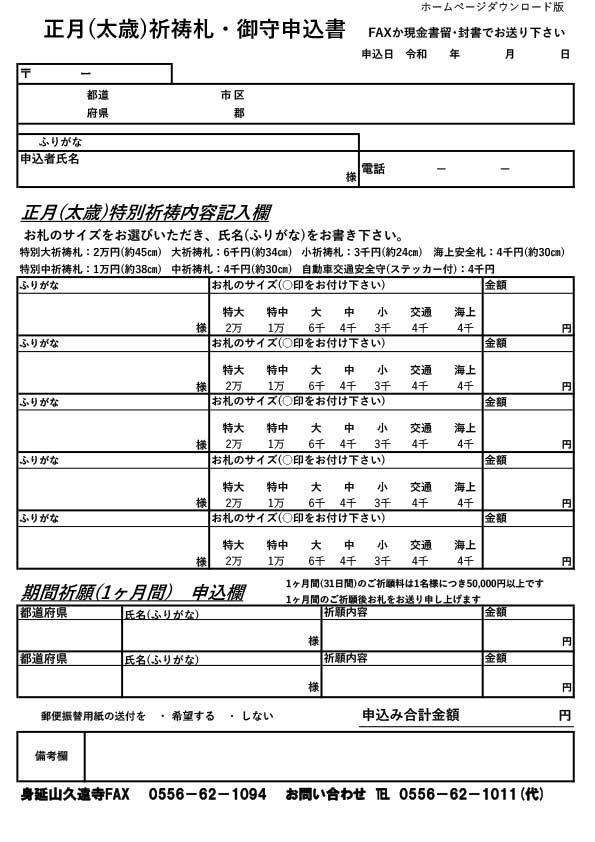 ホームページダウンロード版
正月(太歳)祈祷札・御守申込書 FAXか現金書留･封書でお送り下さい
申込日 令和 年 月 日
〒 ー
都道 市区
府県 郡
ふりがな
申込者氏名 様 電話 － －
正月(太歳)特別祈祷内容記入欄
お札のサイズをお選びいただき、氏名(ふりがな)をお書き下さい。
特別大祈祷札：2万円(約45㎝) 大祈祷札：6千円(約34㎝) 小祈祷札：3千円(約24㎝) 海上安全札：4千円(約30㎝)
特別中祈祷札：1万円(約38㎝) 中祈祷札：4千円(約30㎝) 自動車交通安全守(ステッカー付)：4千円
ふりがな お札のサイズ(○印をお付け下さい) 金額
特大 特中 大 中 小 交通 海上
様 2万 1万 6千 4千 3千 4千 4千 円
ふりがな お札のサイズ(○印をお付け下さい) 金額
特大 特中 大 中 小 交通 海上
様 2万 1万 6千 4千 3千 4千 4千 円
ふりがな お札のサイズ(○印をお付け下さい) 金額
特大 特中 大 中 小 交通 海上
様 2万 1万 6千 4千 3千 4千 4千 円
ふりがな お札のサイズ(○印をお付け下さい) 金額
特大 特中 大 中 小 交通 海上
様 2万 1万 6千 4千 3千 4千 4千 円
ふりがな お札のサイズ(○印をお付け下さい) 金額
特大 特中 大 中 小 交通 海上
様 2万 1万 6千 4千 3千 4千 4千 円
期間祈願(1ヶ月間) 申込欄 1ヶ月間(31日間)のご祈願料は1名様につき50,000円以上です
1ヶ月間のご祈願後お札をお送り申し上げます
都道府県 氏名(ふりがな) 祈願内容 金額
様 円
都道府県 氏名(ふりがな) 祈願内容 金額
様 円
郵便振替用紙の送付を ・希望する ・しない 申込み合計金額 円
備考欄
身延山久遠寺FAX 0556－62－1094 お問い合わせ ℡ 0556－62－1011(代)